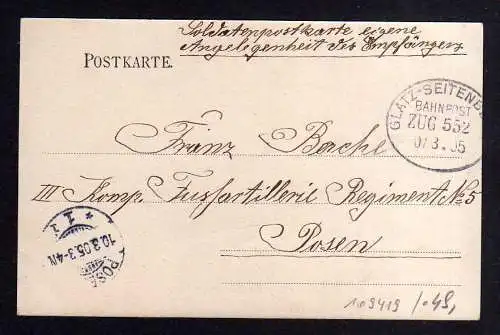 Soldatenpostkarte eigene
Angelegenheit des Empfängers
POSTKARTE.
GLATZ-SEITENB
BAHNPOST
ZUG 552
07.3.05
Franz Berche
III Komp. Fussartillerie Regiment No 5
Posen
10.3.05.3-4N
POSE
109419 /.48,